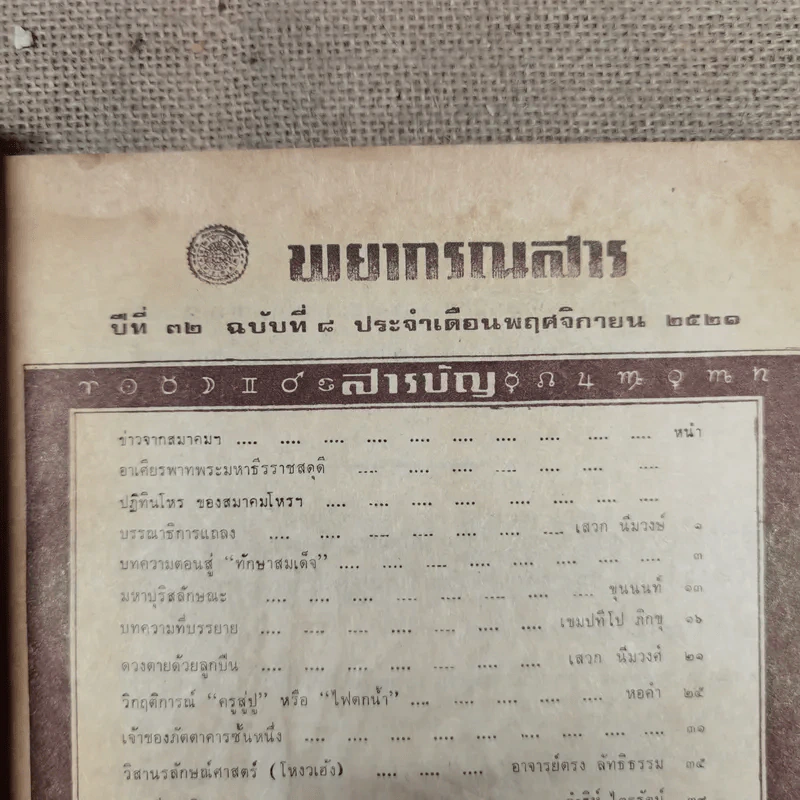 พยากรณสาร
ปีที่ ๓๒ ฉบับที่ ๘ ประจำเดือนพฤศจิกายน ๒๕๒๑
♈ ☉ ♉ ☽ ♊ ♂ ♋ สารบัญ ☿ ☊ ♃ ♏ ♀ ♏ ♄
ข่าวจากสมาคมฯ .... .... .... .... .... .... .... .... .... หน้า
อาเศียรพาทพระมหาธีรราชสดุดี .... .... .... .... .... .... ....
ปฏิทินโหร ของสมาคมโหรฯ .... .... .... .... .... .... ....
บรรณาธิการแถลง .... .... .... .... .... .... เสวก นีมวงษ์ ๑
บทความตอนสู่ “ทักษาสมเด็จ” .... .... .... .... .... .... .... ๓
มหาบุริสลักษณะ .... .... .... .... .... .... .... ขุนนนท์ ๑๓
บทความที่บรรยาย .... .... .... .... .... .... เขมปทีโป ภิกขุ ๑๖
ดวงตายด้วยลูกปืน .... .... .... .... .... .... เสวก นีมวงศ์ ๒๑
วิกฤติการณ์ “ครูสู่ปู” หรือ “ไฟตกน้ำ” .... .... .... .... .... หอคำ ๒๕
เจ้าของภัตตาคารชั้นหนึ่ง .... .... .... .... .... .... .... .... ๓๑
วิสานรลักษณ์ศาสตร์ (โหงวเฮ้ง) .... .... .... อาจารย์ตรง ลัทธิธรรม ๓๕